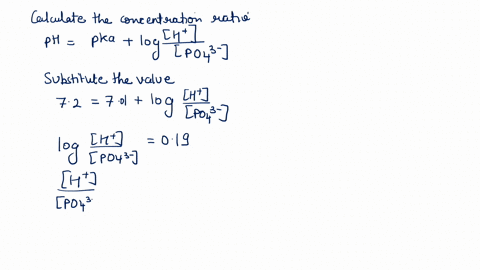 Calculate the concentration ratio
pH = pka + log [H⁺] / [PO₄³⁻]
Substitute the value
7.2 = 7.01 + log [H⁺] / [PO₄³⁻]
log [H⁺] / [PO₄³⁻] = 0.19
[H⁺] / [PO₄³